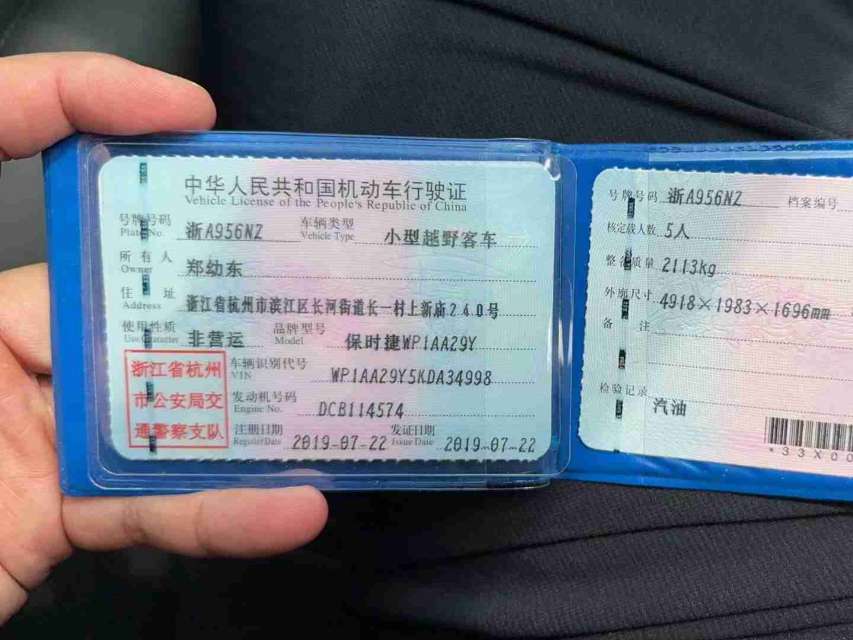 中华人民共和国机动车行驶证
Vehicle License of the People's Republic of China
号牌号码 浙A956NZ 车辆类型 小型越野客车
Plate No. Vehicle Type
所有人 郑幼东
Owner
住址 浙江省杭州市滨江区长河街道长一村上新庙240号
Address
使用性质 非营运 品牌型号 保时捷WP1AA29Y
Use Character Model
浙江省杭州
市公安局交
通警察支队
车辆识别代号 WP1AA29Y5KDA34998
VIN
发动机号码 DCB114574
Engine No.
注册日期 2019-07-22 发证日期 2019-07-22
Register Date Issue Date
号牌号码 浙A956NZ 档案编号
核定载人数 5人
整备质量 2113kg
外廓尺寸 4918×1983×1696mm
备注
检验记录 汽油
*33X00